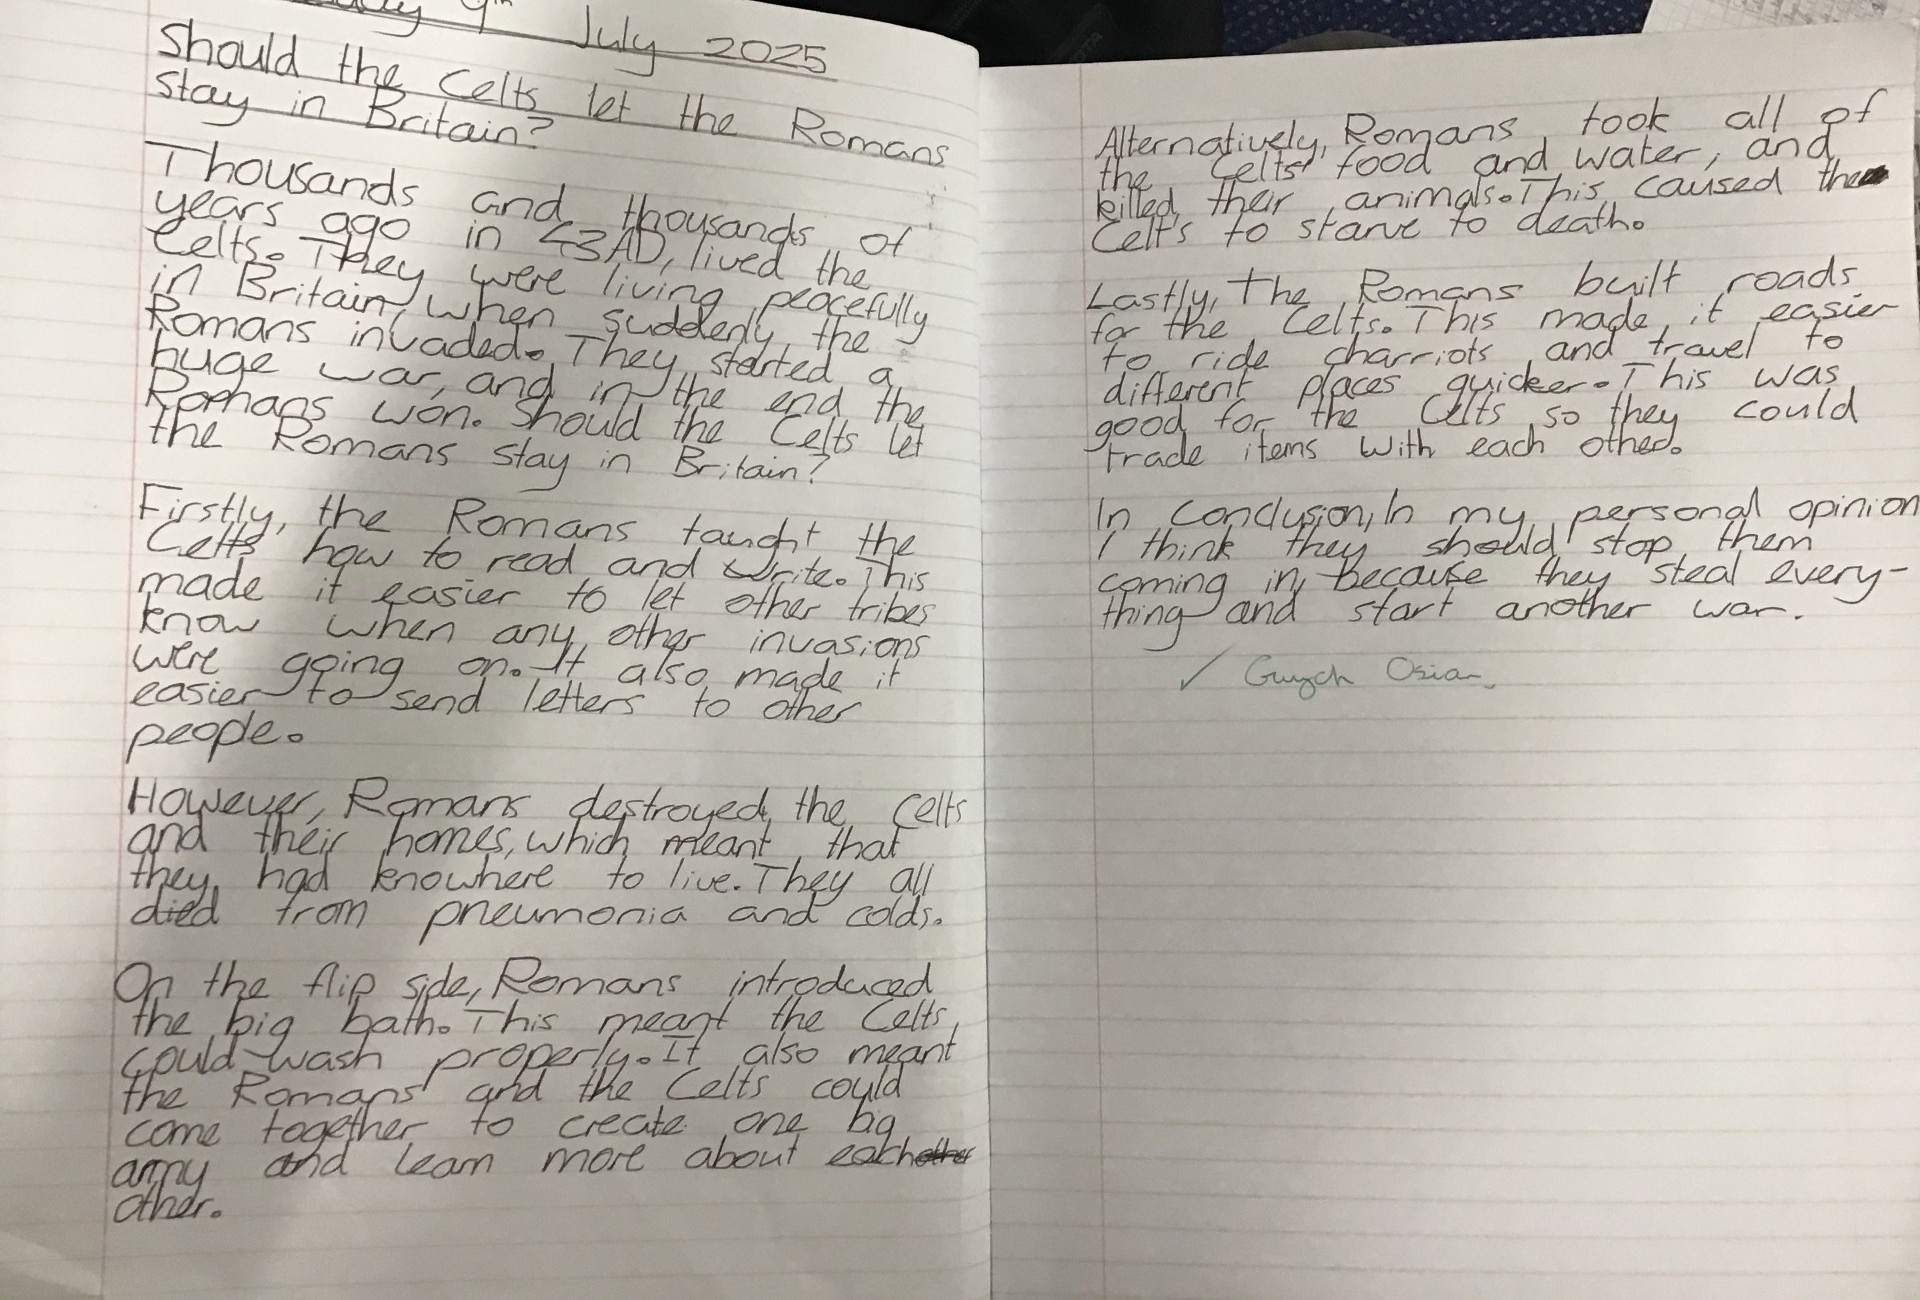 9th July 2025
Should the Celts let the Romans
stay in Britain?
Thousands and thousands of
years ago in 43AD, lived the
Celts. They were living peacefully
in Britain, when suddenly, the
Romans invaded. They started a
huge war, and in the end the
Romans won. Should the Celts let
the Romans stay in Britain?
Firstly, the Romans taught the
Celts how to read and write. This
made it easier to let other tribes
know when any other invasions
were going on. It also made it
easier to send letters to other
people.
However, Romans destroyed the Celts
and their homes, which meant that
they had knowhere to live. They all
died from pneumonia and colds.
On the flip side, Romans introduced
the big bath. This meant the Celts
could wash properly. It also meant
the Romans and the Celts could
come together to create one big
army and learn more about each
other.
Alternatively, Romans took all of
the Celts' food and water, and
killed their animals. This caused the
Celt's to starve to death.
Lastly, The Romans built roads
for the Celts. This made it easier
to ride charriots and travel to
different places quicker. This was
good for the Celts so they could
trade items with each other.
In conclusion, In my personal opinion
I think they should stop them
coming in, because they steal every-
thing and start another war.
✓